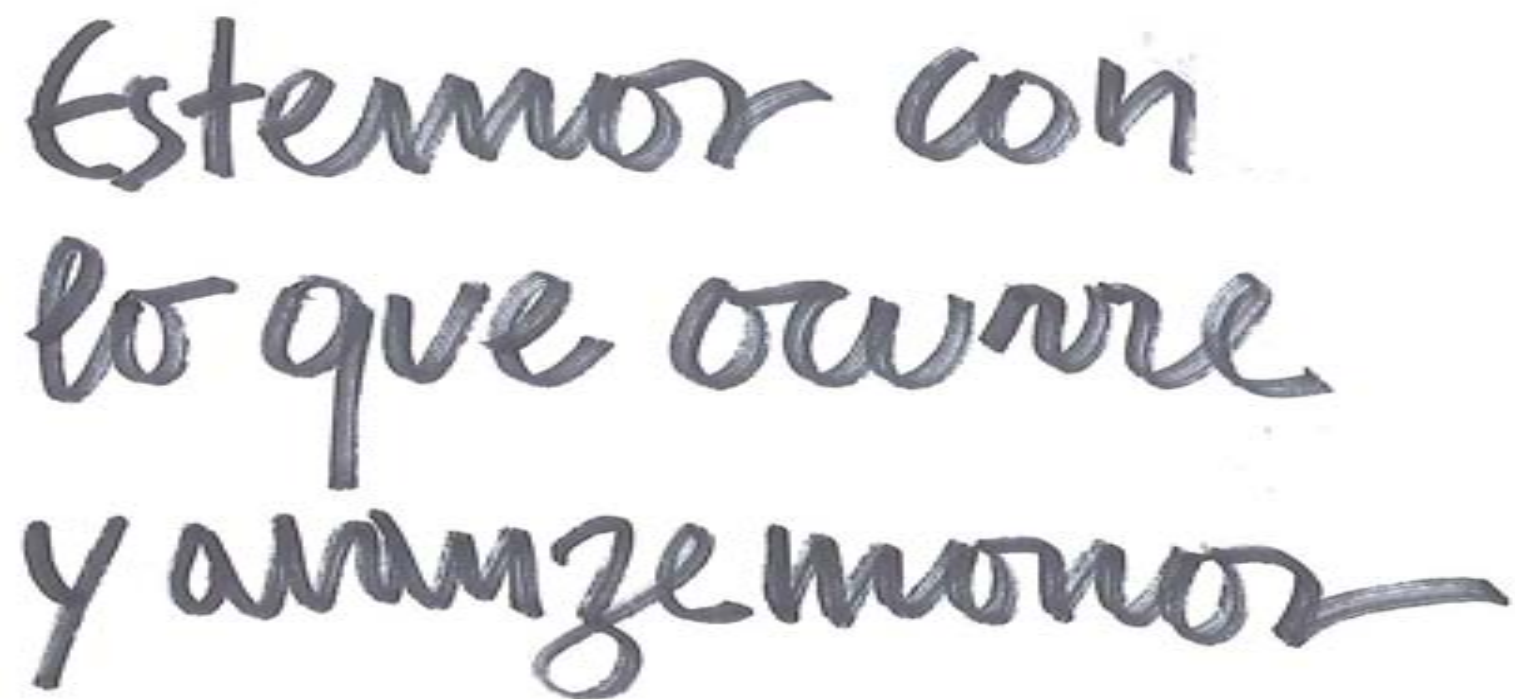 Estemos con
lo que ocurre
y avanzemonos